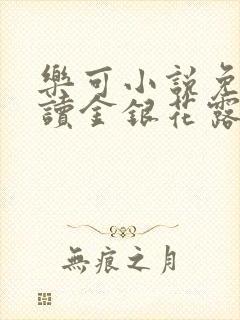 樂可小說免
讀金銀花露
無痕之月